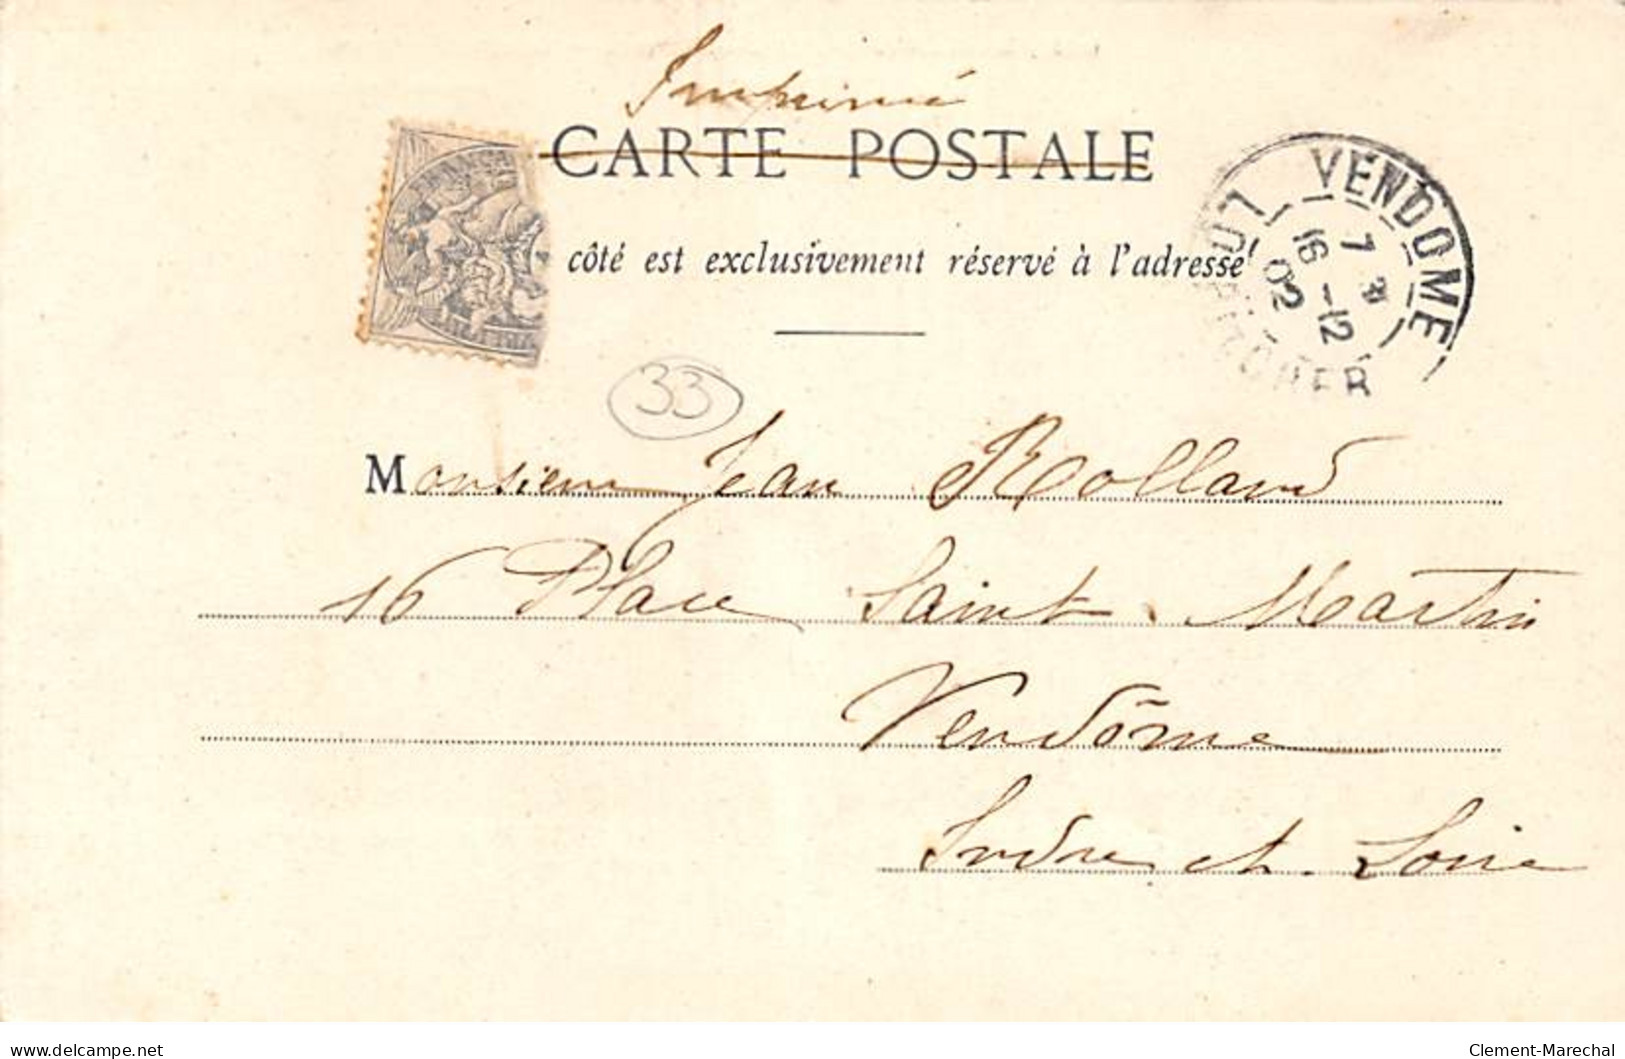 Imprimé
CARTE POSTALE
côté est exclusivement réservé à l'adresse
VENDOME
7
16 -12
02
LOIR-ET-CHER
33
Monsieur Jean Rolland
16 Place Saint Martin
Vendôme
Indre et Loire
delcampe.net
Clement-Marechal